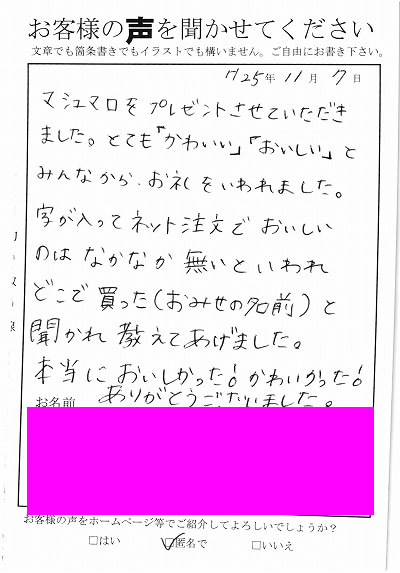 お客様の声を聞かせてください
文章でも箇条書きでもイラストでも構いません。ご自由にお書き下さい。
H25年11月7日
マシュマロをプレゼントさせていただき
ました。とても「かわいい」「おいしい」と
みんなから、お礼をいわれました。
字が入ってネット注文でおいしい
のはなかなか無いといわれ
どこで買った(おみせの名前)と
聞かれ教えてあげました。
本当においしかった!かわいかった!
ありがとうございました。
お名前
お客様の声をホームページ等でご紹介してよろしいでしょうか?
□はい ☑匿名で □いいえ